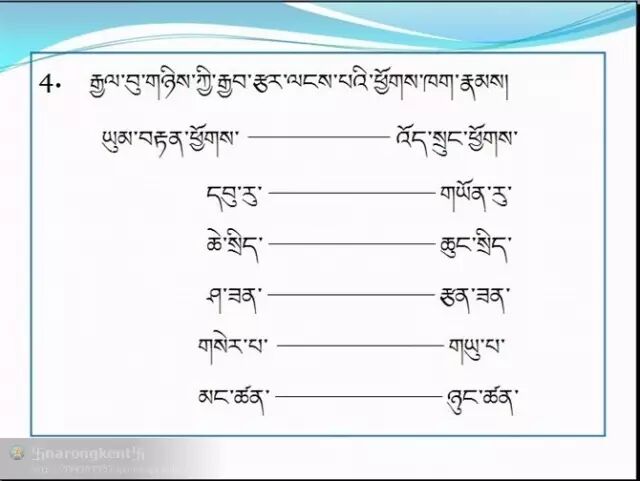 4. རྒྱལ་བུ་གཉིས་ཀྱི་རྒྱབ་རྩར་ལངས་པའི་ཕྱོགས་ཁག་རྣམས།
ཡུམ་བརྟན་ཕྱོགས་ འོད་སྲུང་ཕྱོགས་
དབུ་རུ་ གཡོན་རུ་
ཆེ་སྲིད་ ཆུང་སྲིད་
ཤ་ཟན་ རྩན་ཟན་
གསེར་པ་ གཡུ་པ་
མང་ཚན་ ཉུང་ཚན་
卐narongkent卐